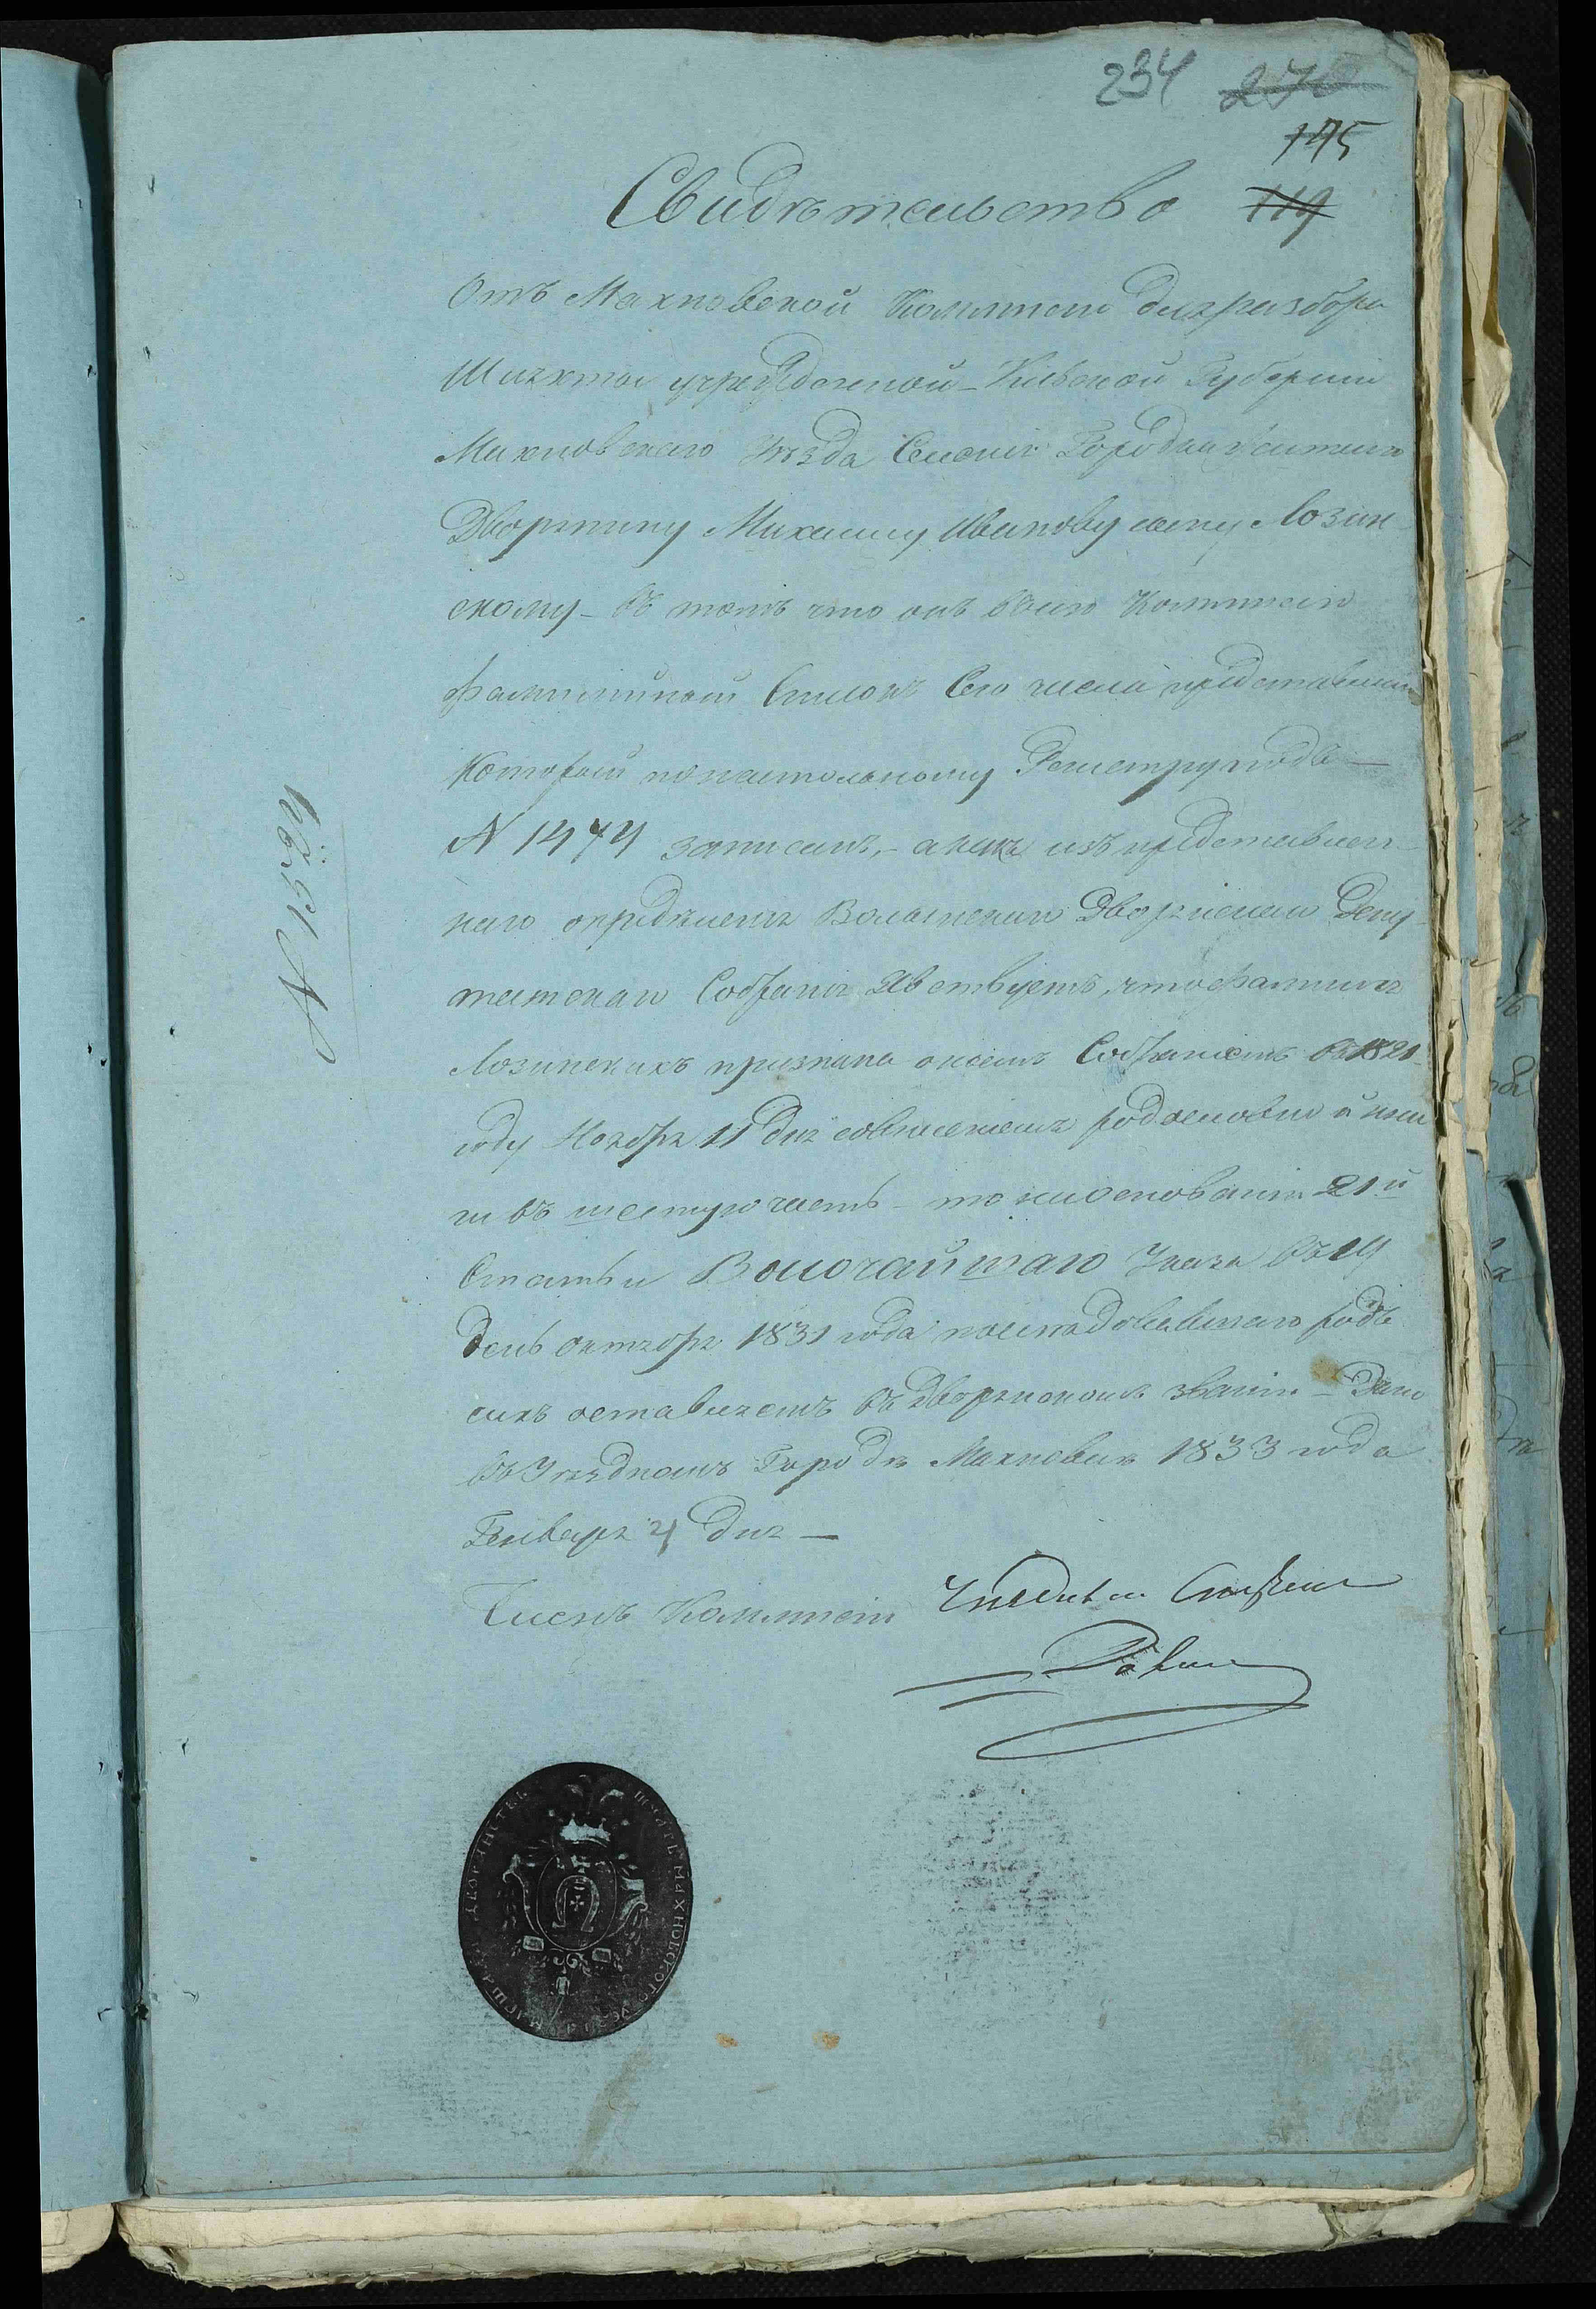 234 270
175
Свидѣтельство 119
Отъ Махновской Коммисіи для разбора
Шляхты учрежденной - Кіевской Губерніи
Махновскаго Уѣзда Селенія Городка жителю
Дворянину Михаилу Иванову сыну Лозин
скому - въ томъ что онъ въ сию Коммисію
фамилийный Списокъ Сего числа представилъ
который по настольному Реистру подъ —
N 1474 записанъ, - а какъ изъ представлен-
наго опредѣленія Волынскаго Дворянскаго Депу
татскаго Собранія Явствуетъ, что фамилія
Лозинскихъ признана онымъ Собраніемъ въ 1820
году Ноября 11 дня со внесеніемъ родословной кни
ги въ шестую часть - то на основаніи 21й
Статьи Высочайшаго Указа въ 19
день октября 1831 года последовавшаго родъ
сихъ оставляетъ въ дворянскомъ званіи - Дано
въ Уѣздномъ Городѣ Махновкѣ 1833 года
Генваря 4 дня —
Членъ Коммисіи
N 1524
ПЕЧАТЬ МАХНОВСКОГО МАРШАЛА ДВОРЯНСТВА